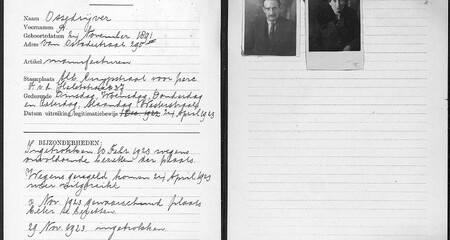 Naam Ossedrijver
Voornamen A.
Geboortedatum 24 November 1891
Adres van Ostadestraat 290
Artikel manufacturen
Staanplaats Alb. Cuypstraat voor perc.
Gedurende Dinsdag, Woensdag, Donderdag
en Zaterdag, Maandag Westerstraat
Datum uitreiking legitimatiebewijs 1 Dec 1922 24 April 1923
BIJZONDERHEDEN:
Ingetrokken 10 Febr. 1923 wegens
onvoldoende bezetten der plaats.
Wegens geregeld komen 24 April 1923
weer
Nov. 1923 gewaarschuwd plaats
beter te bezetten.
29 Nov. 1923 ingetrokken.